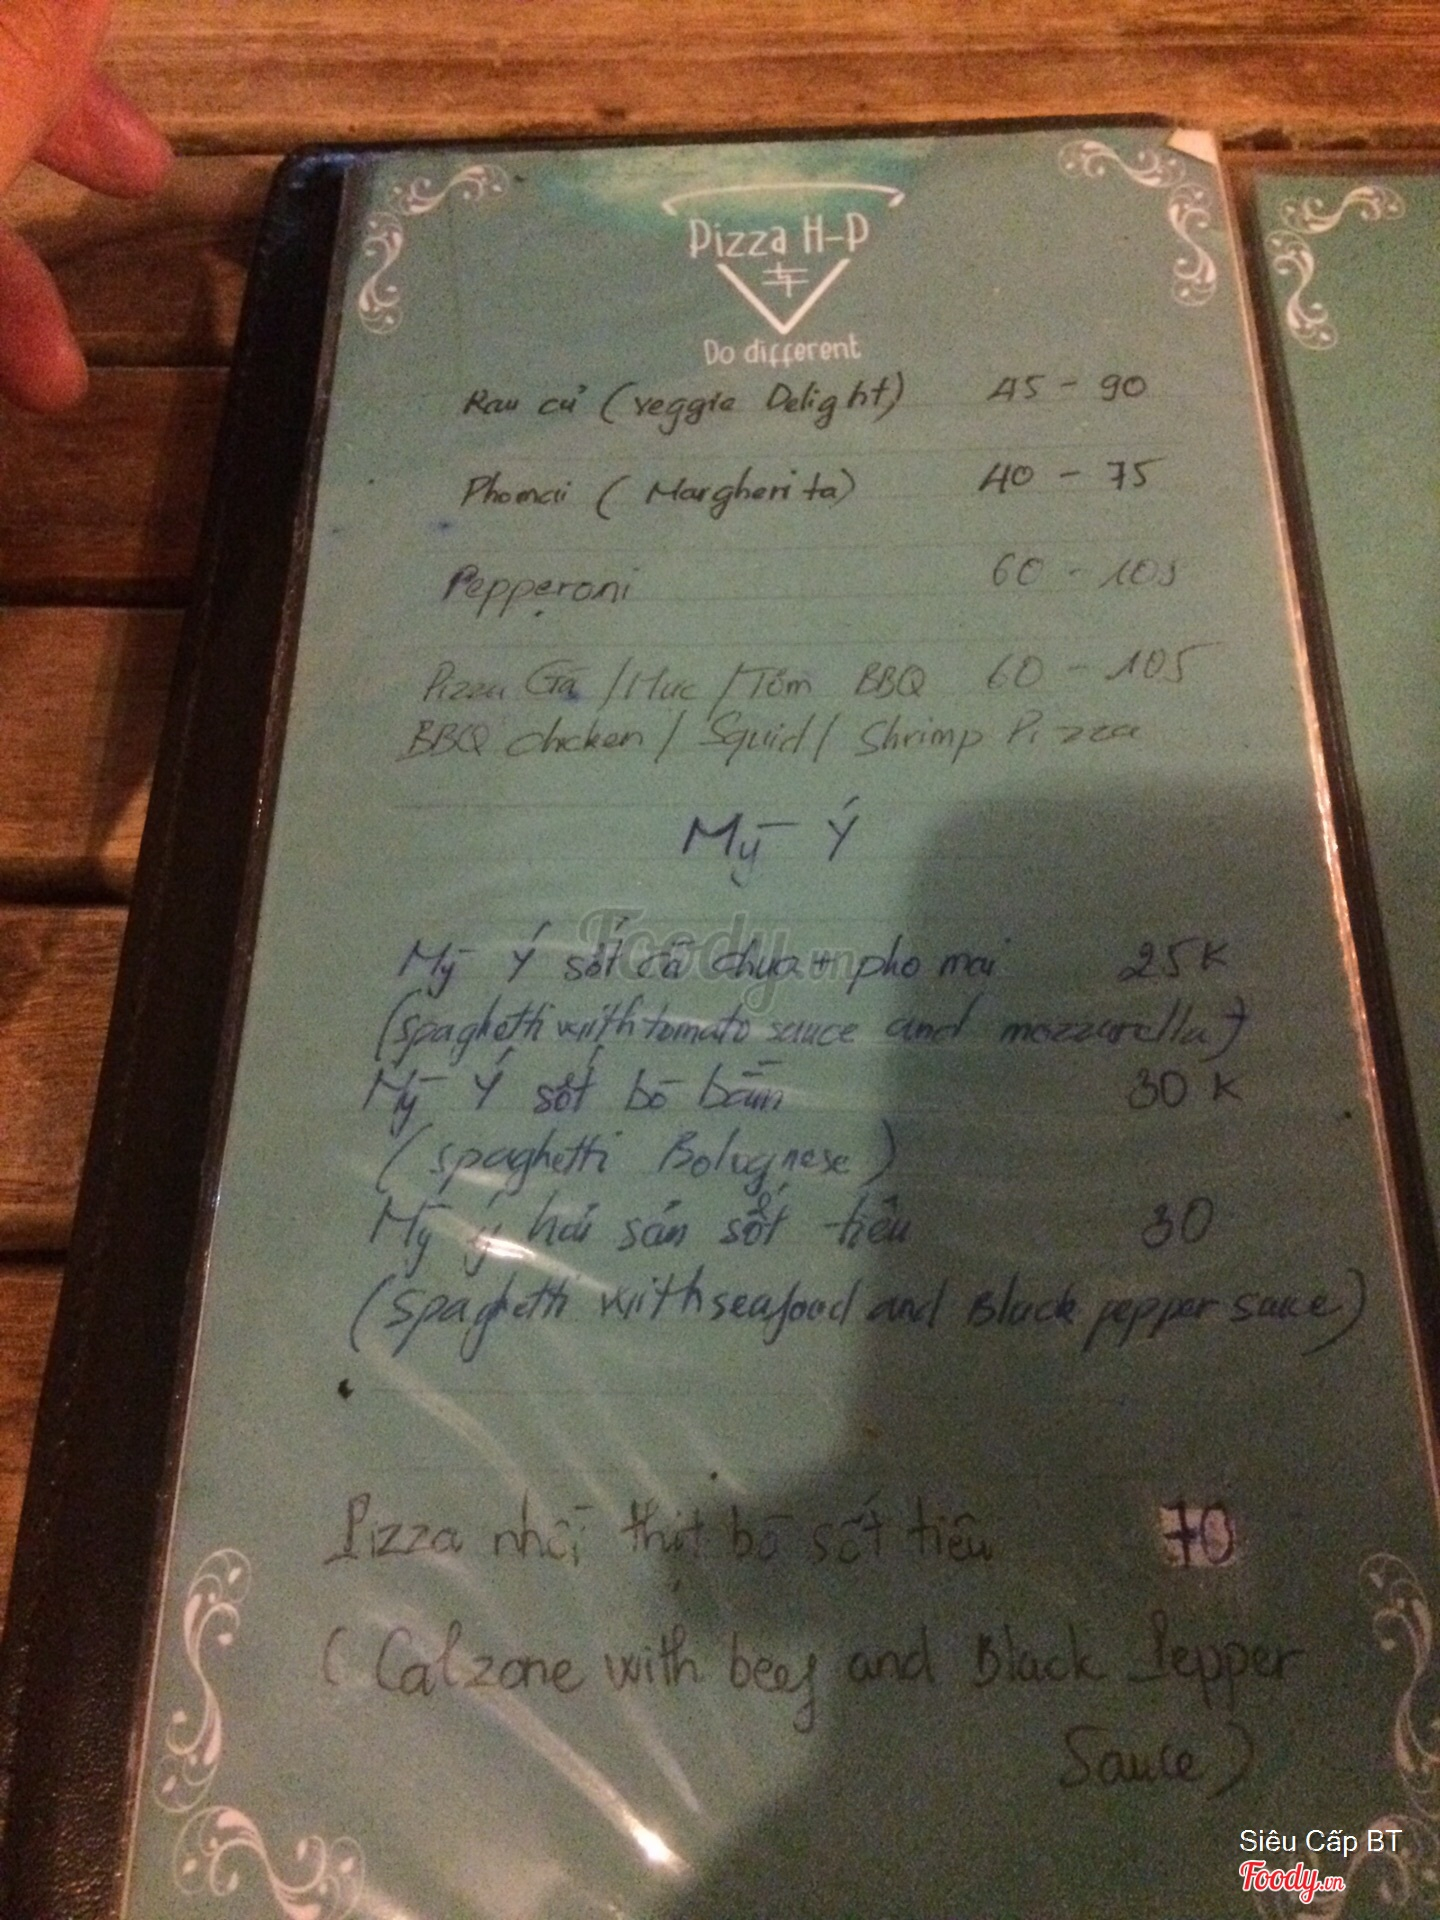 Pizza H-P
Do different
Rau củ (veggie Delight) 45 - 90
Phomai (Margherita) 40 - 75
Pepperoni 60 - 105
Pizza Gà / Mực / Tôm BBQ 60 - 105
BBQ chicken / Squid / Shrimp Pizza
Mỳ Ý
Mỳ Ý sốt cà chua + pho mai 25K
(spaghetti with tomato sauce and mozzarella)
Mỳ Ý sốt bò bằm 30K
(spaghetti Bolognese)
Mỳ ý hải sản sốt tiêu 30
(spaghetti with seafood and Black pepper sauce)
Pizza nhồi thịt bò sốt tiêu 70
(Calzone with beef and Black Pepper
Sauce)
Foody.vn
Siêu Cấp BT
Foody.vn